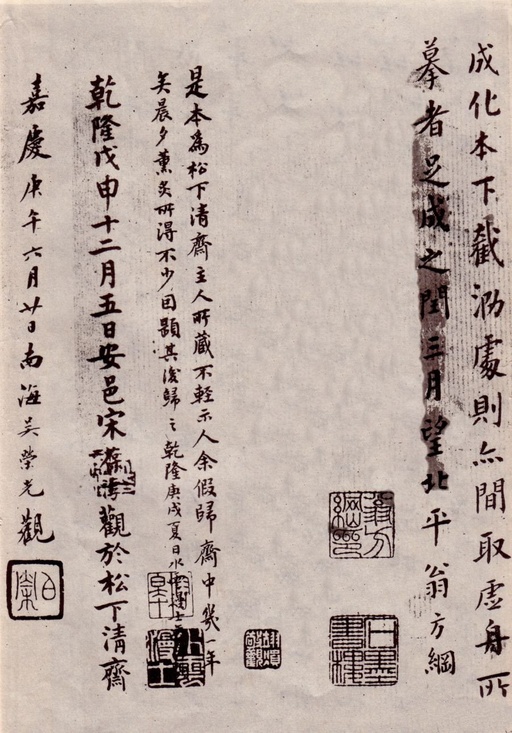 成化本下截泐處則亦間取虛舟所
摹者足成之閏三月望北平翁方綱
是本為松下清齋主人所藏不輕示人余假歸齋中幾一年
矣晨夕薰炙所得不少因題其後歸之乾隆庚戌夏日
乾隆戊申十二月五日安邑宋葆淳觀於松下清齋
嘉慶庚午六月廿日南海吳榮光觀
翁方綱印
石墨書樓
伯榮